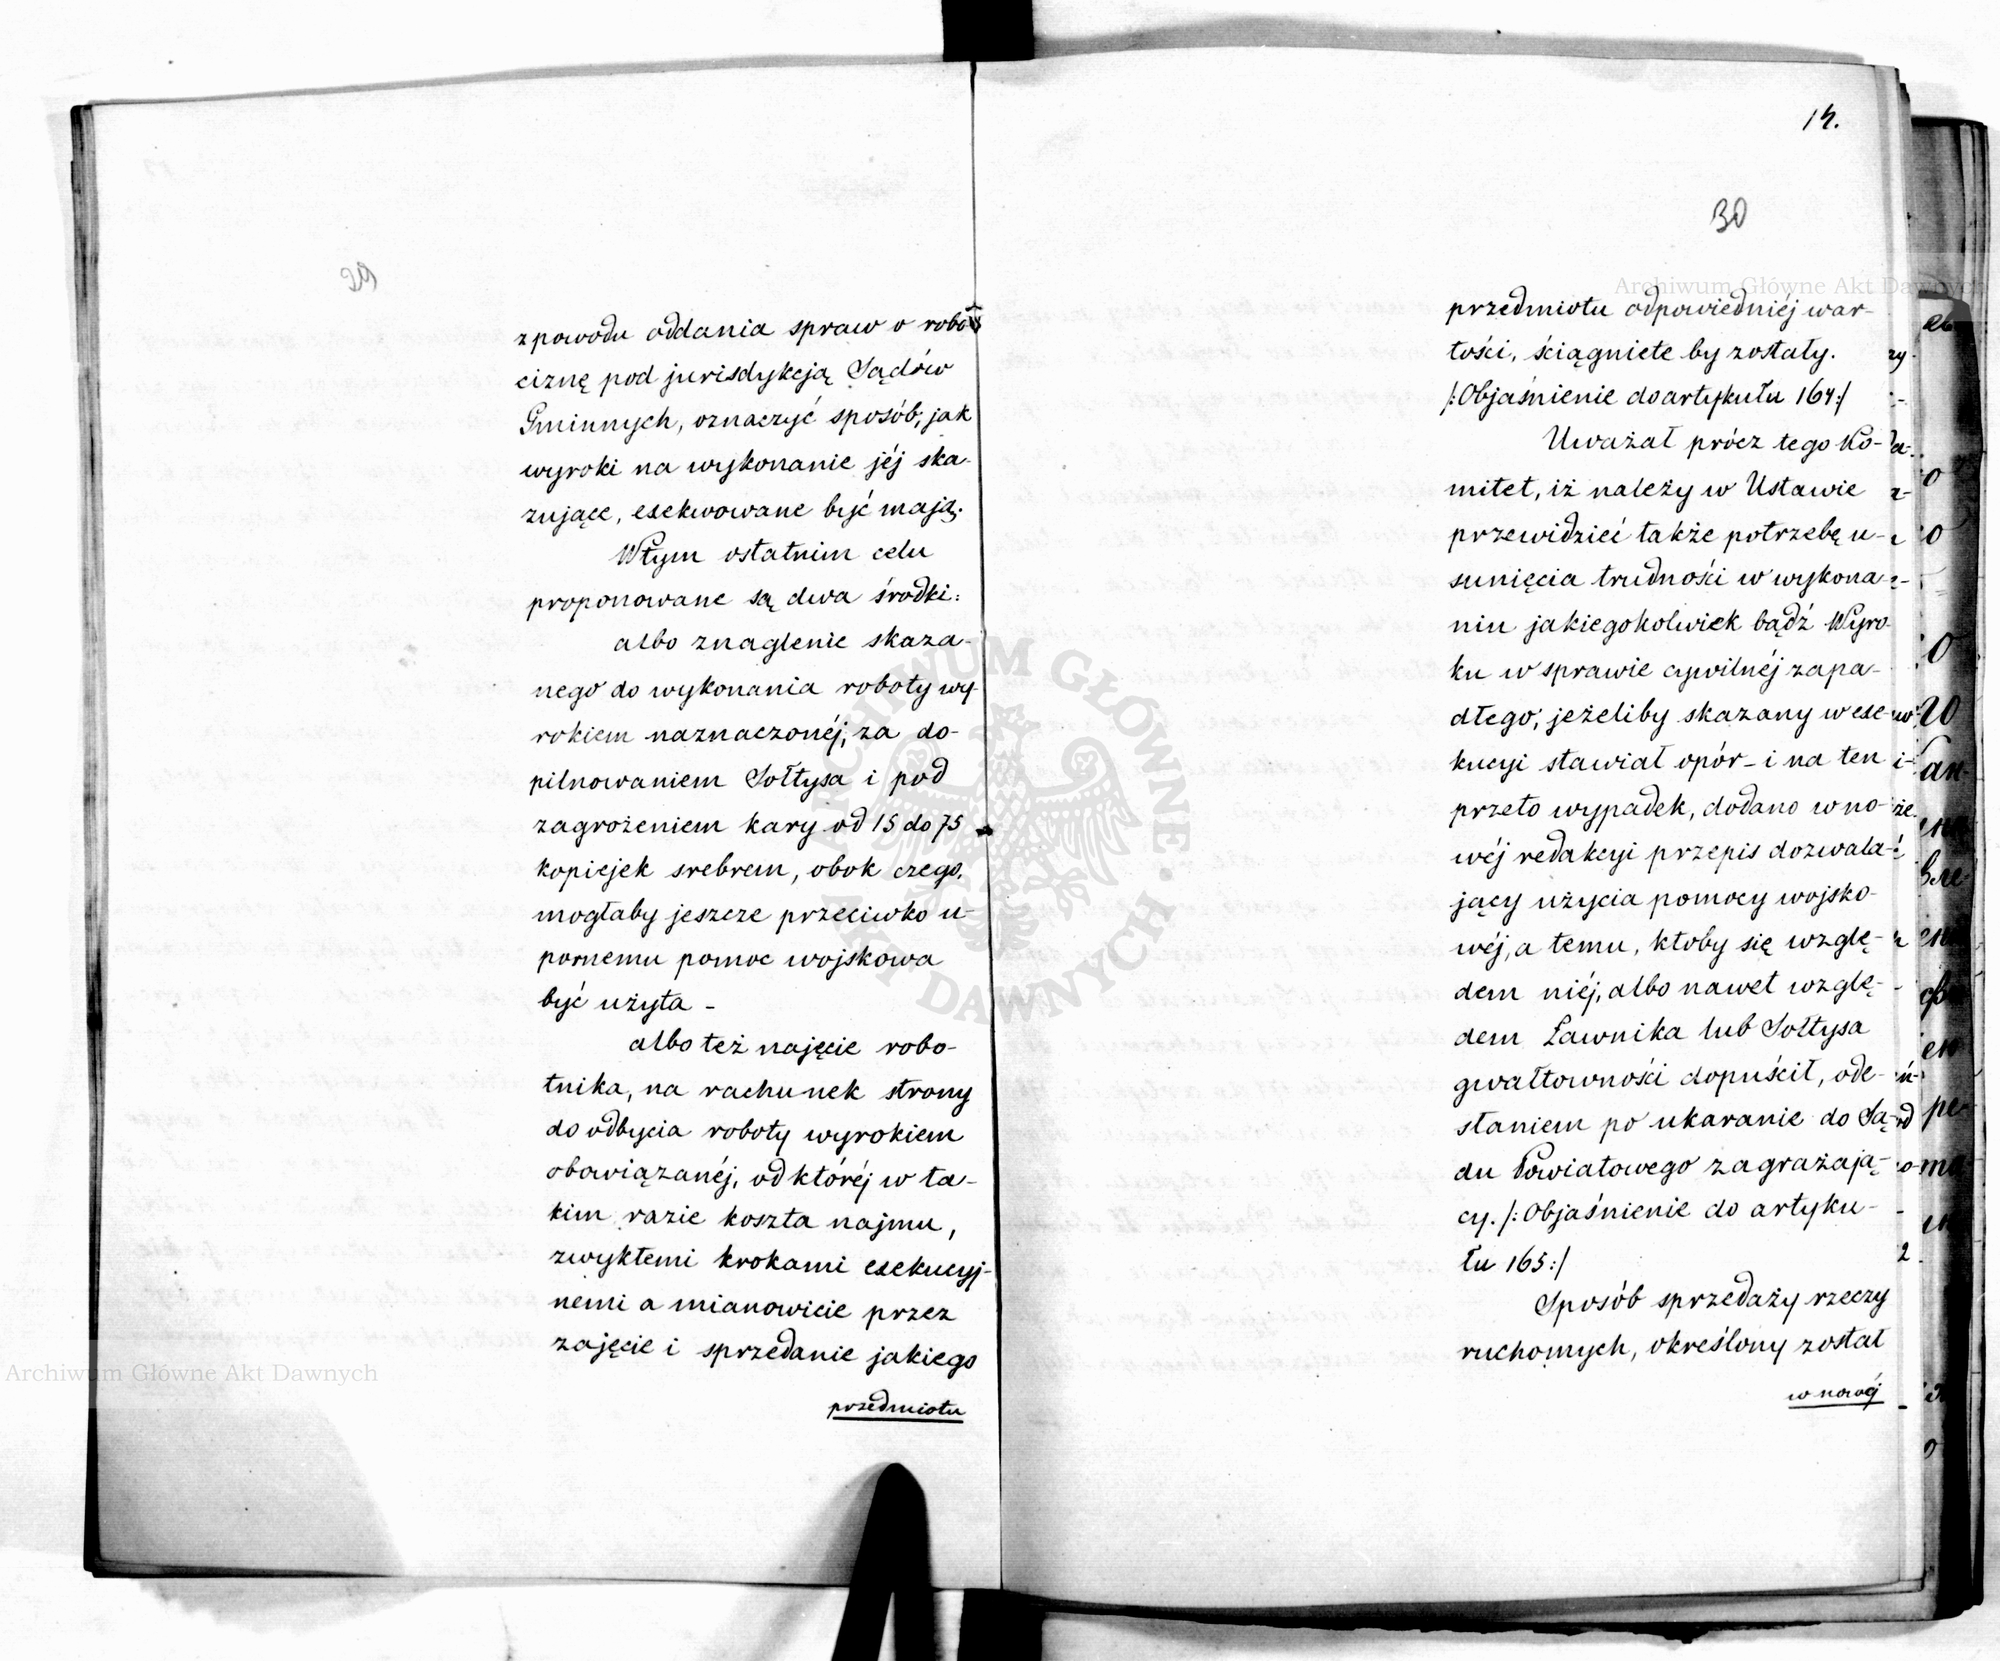 29
z powodu oddania spraw o robo-
ciznę pod jurisdykcją Sądów
Gminnych, oznaczyć sposób, jak
wyroki na wykonanie jéj ska-
zujące, exekwowane być mają.
W tym ostatnim celu
proponowane są dwa środki:
albo znaglenie skaza-
nego do wykonania roboty wy-
rokiem naznaczonéj, za do-
pilnowaniem Sołtysa i pod
zagrożeniem kary od 15 do 75
kopiejek srebrem, obok czego,
mogłaby jeszcze przeciwko u-
pornemu pomoc wojskowa
być użyta -
albo też najęcie robo-
tnika, na rachunek strony
do odbycia roboty wyrokiem
obowiązanéj, od któréj w ta-
kim razie koszta najmu,
zwykłemi krokami exekucyj-
nemi a mianowicie przez
zajęcie i sprzedanie jakiego
przedmiotu
14.
30
przedmiotu odpowiedniéj war-
tości, ściągnięte by zostały.
/:Objaśnienie do artykułu 164:/
Uważał prócz tego Ko-
mitet, iż należy w Ustawie
przewidzieć także potrzebę u-
sunięcia trudności w wykona-
niu jakiegokolwiek bądź Wyro-
ku w sprawie cywilnéj zapa-
dłego, jeżeliby skazany w exe-
kucyi stawiał opór - i na ten
przeto wypadek, dodano w no-
wéj redakcyi przepis dozwala-
jący użycia pomocy wojsko-
wéj, a temu, ktoby się wzglę-
dem niéj, albo nawet wzglę-
dem Ławnika lub Sołtysa
gwałtowności dopuścił, ode-
słaniem po ukaranie do Są-
du Powiatowego zagrażają-
cy. /:Objaśnienie do artyku-
łu 165:/
Sposób sprzedaży rzeczy
ruchomych, określony został
w nowéj
Archiwum Główne Akt Dawnych
Archiwum Główne Akt Dawnych
ARCHIWUM GŁÓWNE AKT DAWNYCH